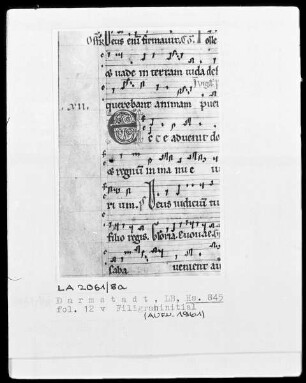 Offm Deus eni firmavit. Co. Tolle
os uade in terram iuda def
Vigil
querebant animam pueri
.VII.
Ecce aduenit do
os regnum in manu e u
rium. ps Deus iudicium tu
filio regis. Gloria. Euouae. G
saba uenient au
LA 2061/8a
Darmstadt, LB, Hs. 845
fol. 12 v Filigraninitial
(AUFN. 1961)